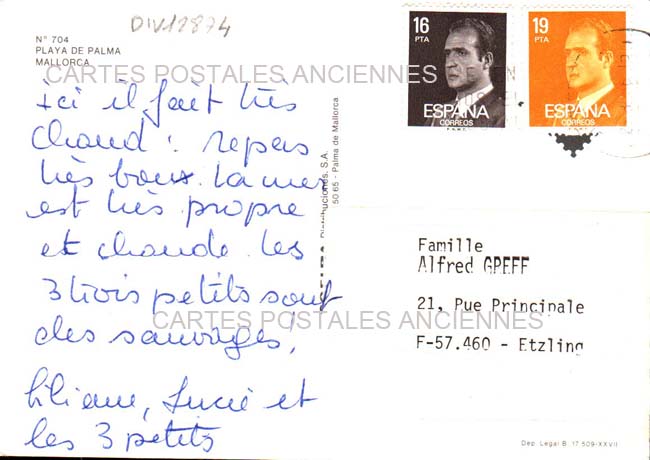 DIV12874
N° 704
PLAYA DE PALMA
MALLORCA
CARTES POSTALES ANCIENNES
16
PTA
ESPAÑA
CORREOS
19
PTA
ESPAÑA
CORREOS
ici il fait très
chaud : repas
très bons. La mer
est très propre
et chaude. les
3 trois petits sont
des sauvages,
Liliane, Lucie et
les 3 petits
S.A.
50 65 - Palma de Mallorca
Famille
Alfred GREFF
21, Rue Principale
F-57.460 - Etzling
CARTES POSTALES ANCIENNES
Dep. Legal B. 17.509-XXVII